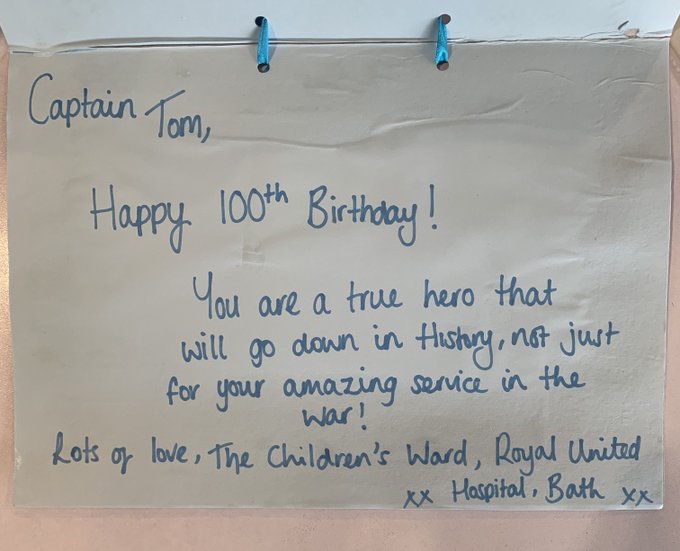 Captain Tom,
Happy 100th Birthday!
You are a true hero that
will go down in History, not just
for your amazing service in the
War!
Lots of love, The Children's Ward, Royal United
xx Hospital, Bath xx